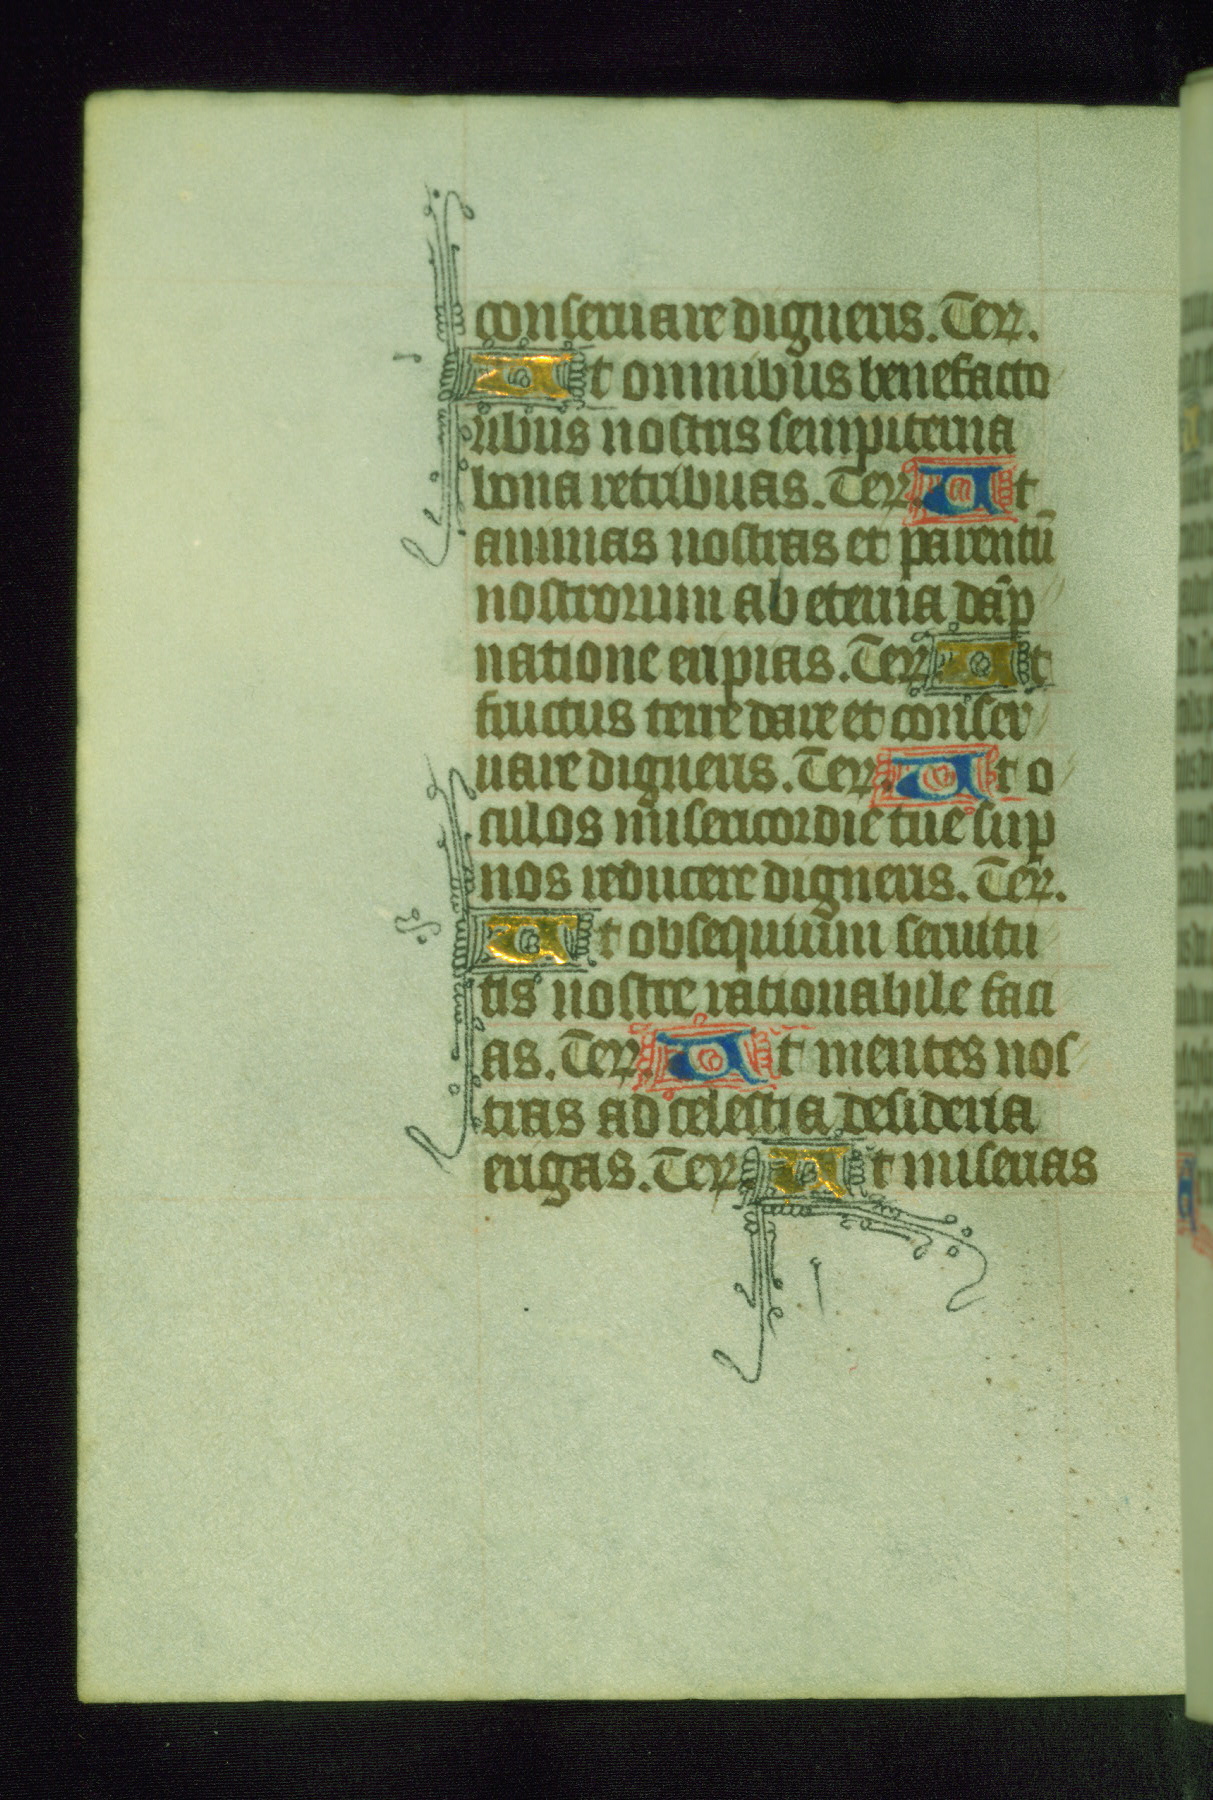 conseruare digneris. Ter.
Ut omnibus benefacto
ribus nostris sempiterna
bona retribuas. Ter. Ut
animas nostras et parentū
nostrorum ab eterna dāp
natione eripias. Ter. Ut
fructus terre dare et conser
uare digneris. Ter. Ut o
culos misericordie tue sup
nos reducere digneris. Ter.
Ut obsequium seruitu
tis nostre rationabile faci
as. Ter. Ut mentes nos
tras ad celestia desideria
erigas. Ter. Ut miserias